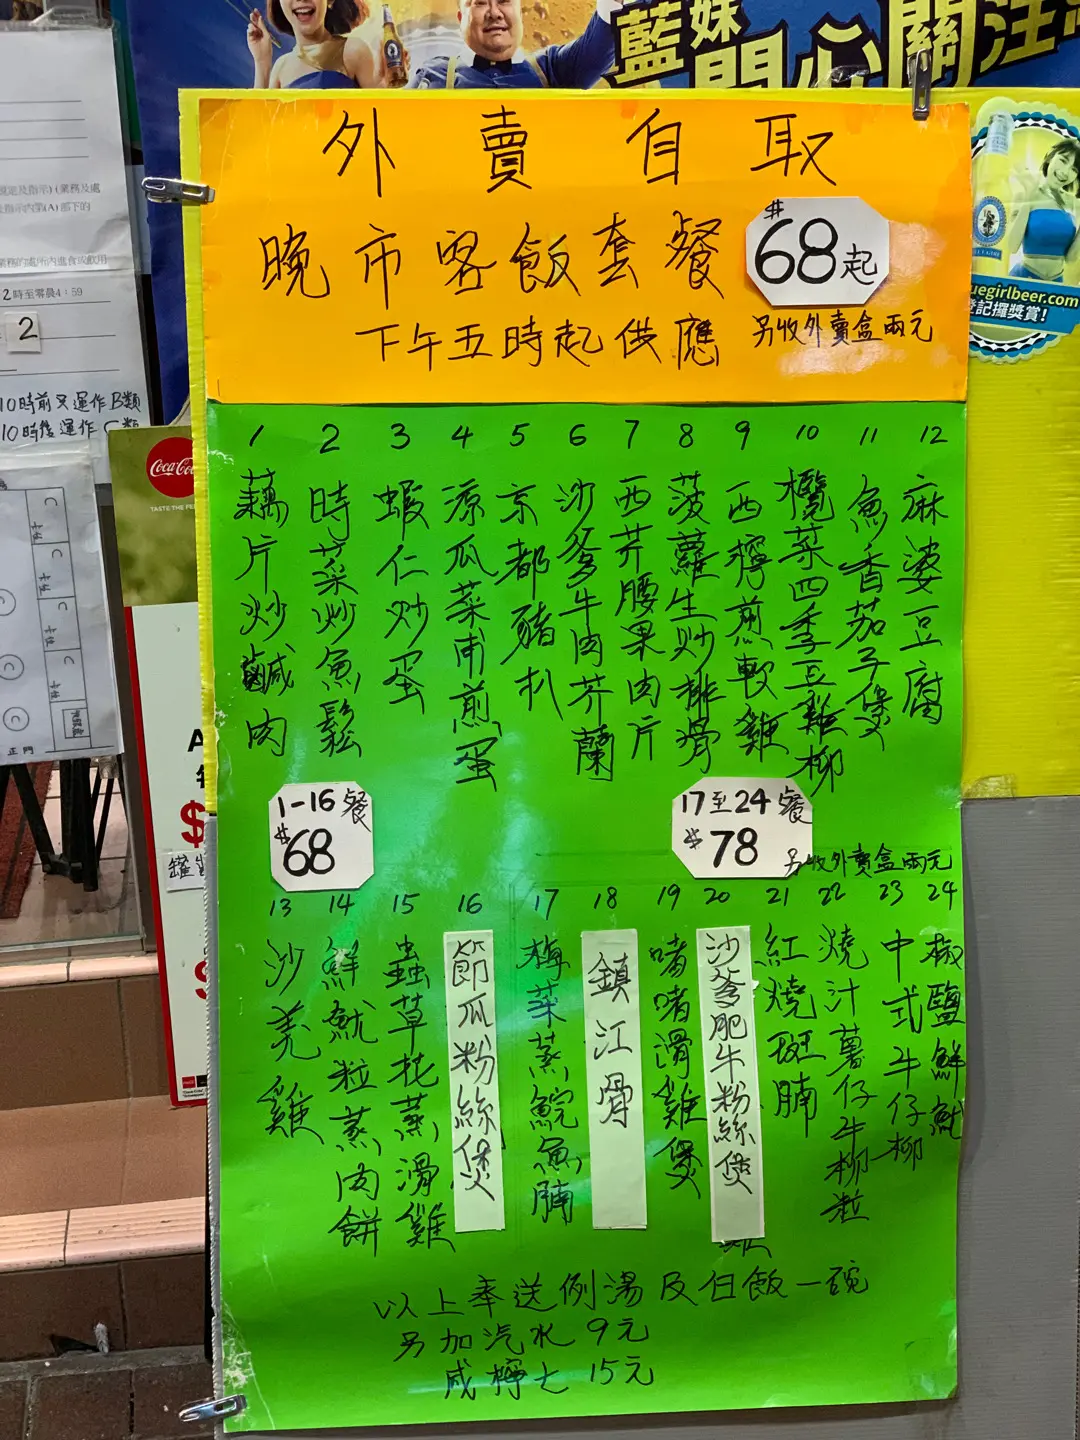 藍妹
開心關注
外賣自取
晚市客飯套餐
$68起
下午五時起供應
另收外賣盒兩元
1 2 3 4 5 6 7 8 9 10 11 12
藕片炒鹹肉
時菜炒魚鬆
蝦仁炒蛋
涼瓜菜甫煎蛋
京都豬扒
沙爹牛肉芥蘭
西芹腰果肉片
菠蘿生炒排骨
西檸煎軟雞
欖菜四季豆雞柳
魚香茄子煲
麻婆豆腐
1-16餐
$68
17至24餐
$78
另收外賣盒兩元
13 14 15 16 17 18 19 20 21 22 23 24
沙羌雞
鮮魷粒蒸肉餅
蟲草花蒸滑雞
節瓜粉絲煲
梅菜蒸鯇魚腩
鎮江骨
啫啫滑雞煲
沙爹肥牛粉絲煲
紅燒斑腩
燒汁薯仔牛柳粒
中式牛仔柳
椒鹽鮮魷
以上奉送例湯及白飯一碗
另加汽水9元
咸檸七15元
uegirlbeer.com
登記攞獎賞!
規定及指示)(業務及處
及指示內第(A)部下的
業務的處所內進食或飲用
2時至零晨4:59
2
10時前又運作B類
10時後運作C類
Coca-Cola
TASTE THE FE
正門